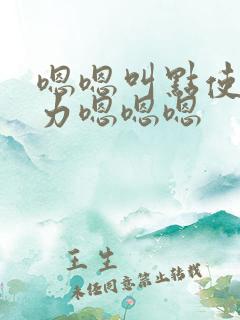 嗯嗯叫點使
力嗯嗯嗯
王生
未经同意禁止转载